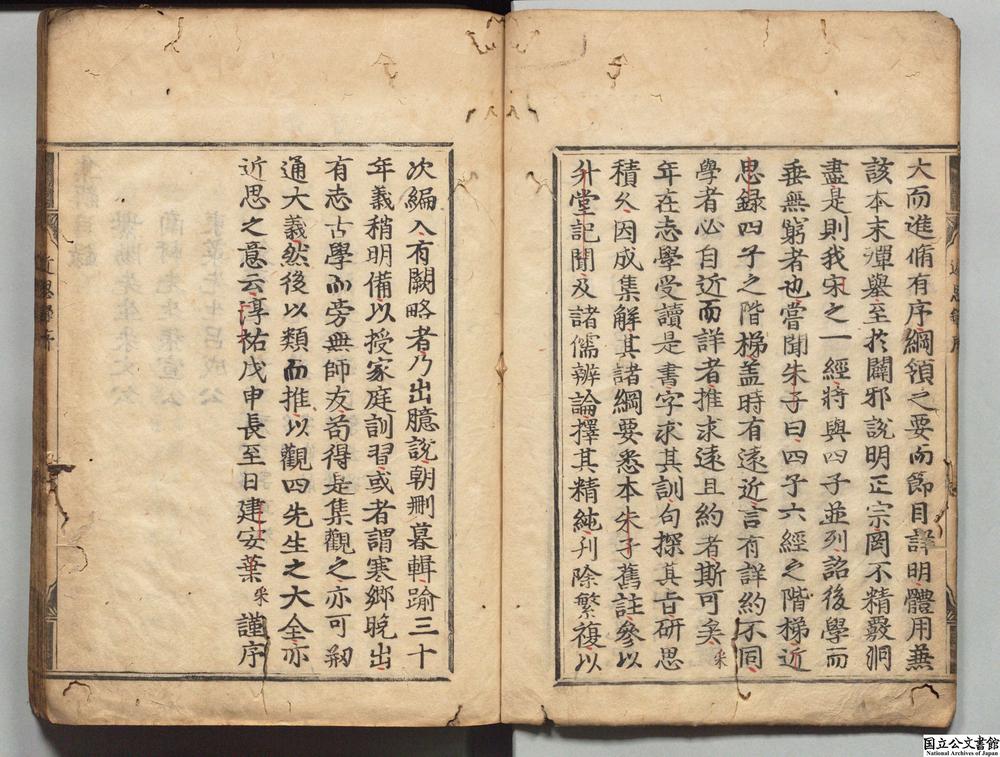 大而進脩有序綱領之要而節目詳明體用兼
該本末殫舉至於闢邪說明正宗罔不精覈洞
盡是則我宋之一經將與四子並列詔後學而
垂無窮者也嘗聞朱子曰四子六經之階梯近
思録四子之階梯盖時有遠近言有詳約不同
學者必自近而詳者推求遠且約者斯可矣采
年在志學受讀是書字求其訓句探其旨研思
積久因成集解其諸綱要悉本朱子舊註參以
升堂記聞及諸儒辨論擇其精純刋除繁複以
次編入有闕略者乃出臆說朝刪暮輯踰三十
年義稍明備以授家庭訓習或者謂寒鄉晚出
有志古學而旁無師友苟得是集觀之亦可剏
通大義然後以類而推以觀四先生之大全亦
近思之意云淳祐戊申長至日建安葉采謹序
近思録序
国立公文書館
National Archives of Japan